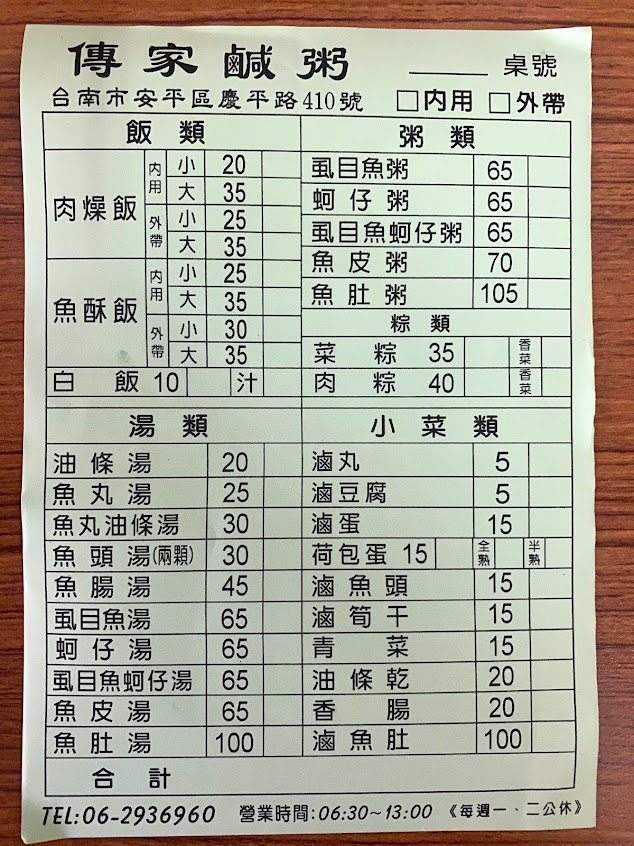 傳家鹹粥 ______ 桌號
台南市安平區慶平路410號 □內用 □外帶
飯類
肉燥飯
內用 小 20
大 35
外帶 小 25
大 35
魚酥飯
內用 小 25
大 35
外帶 小 30
大 35
白飯 10 汁
粥類
虱目魚粥 65
蚵仔粥 65
虱目魚蚵仔粥 65
魚皮粥 70
魚肚粥 105
粽類
菜粽 35 香菜
肉粽 40 香菜
湯類
油條湯 20
魚丸湯 25
魚丸油條湯 30
魚頭湯(兩顆) 30
魚腸湯 45
虱目魚湯 65
蚵仔湯 65
虱目魚蚵仔湯 65
魚皮湯 65
魚肚湯 100
小菜類
滷丸 5
滷豆腐 5
滷蛋 15
荷包蛋 15 全熟 半熟
滷魚頭 15
滷筍干 15
青菜 15
油條乾 20
香腸 20
滷魚肚 100
合計
TEL:06-2936960 營業時間:06:30~13:00 《每週一、二公休》